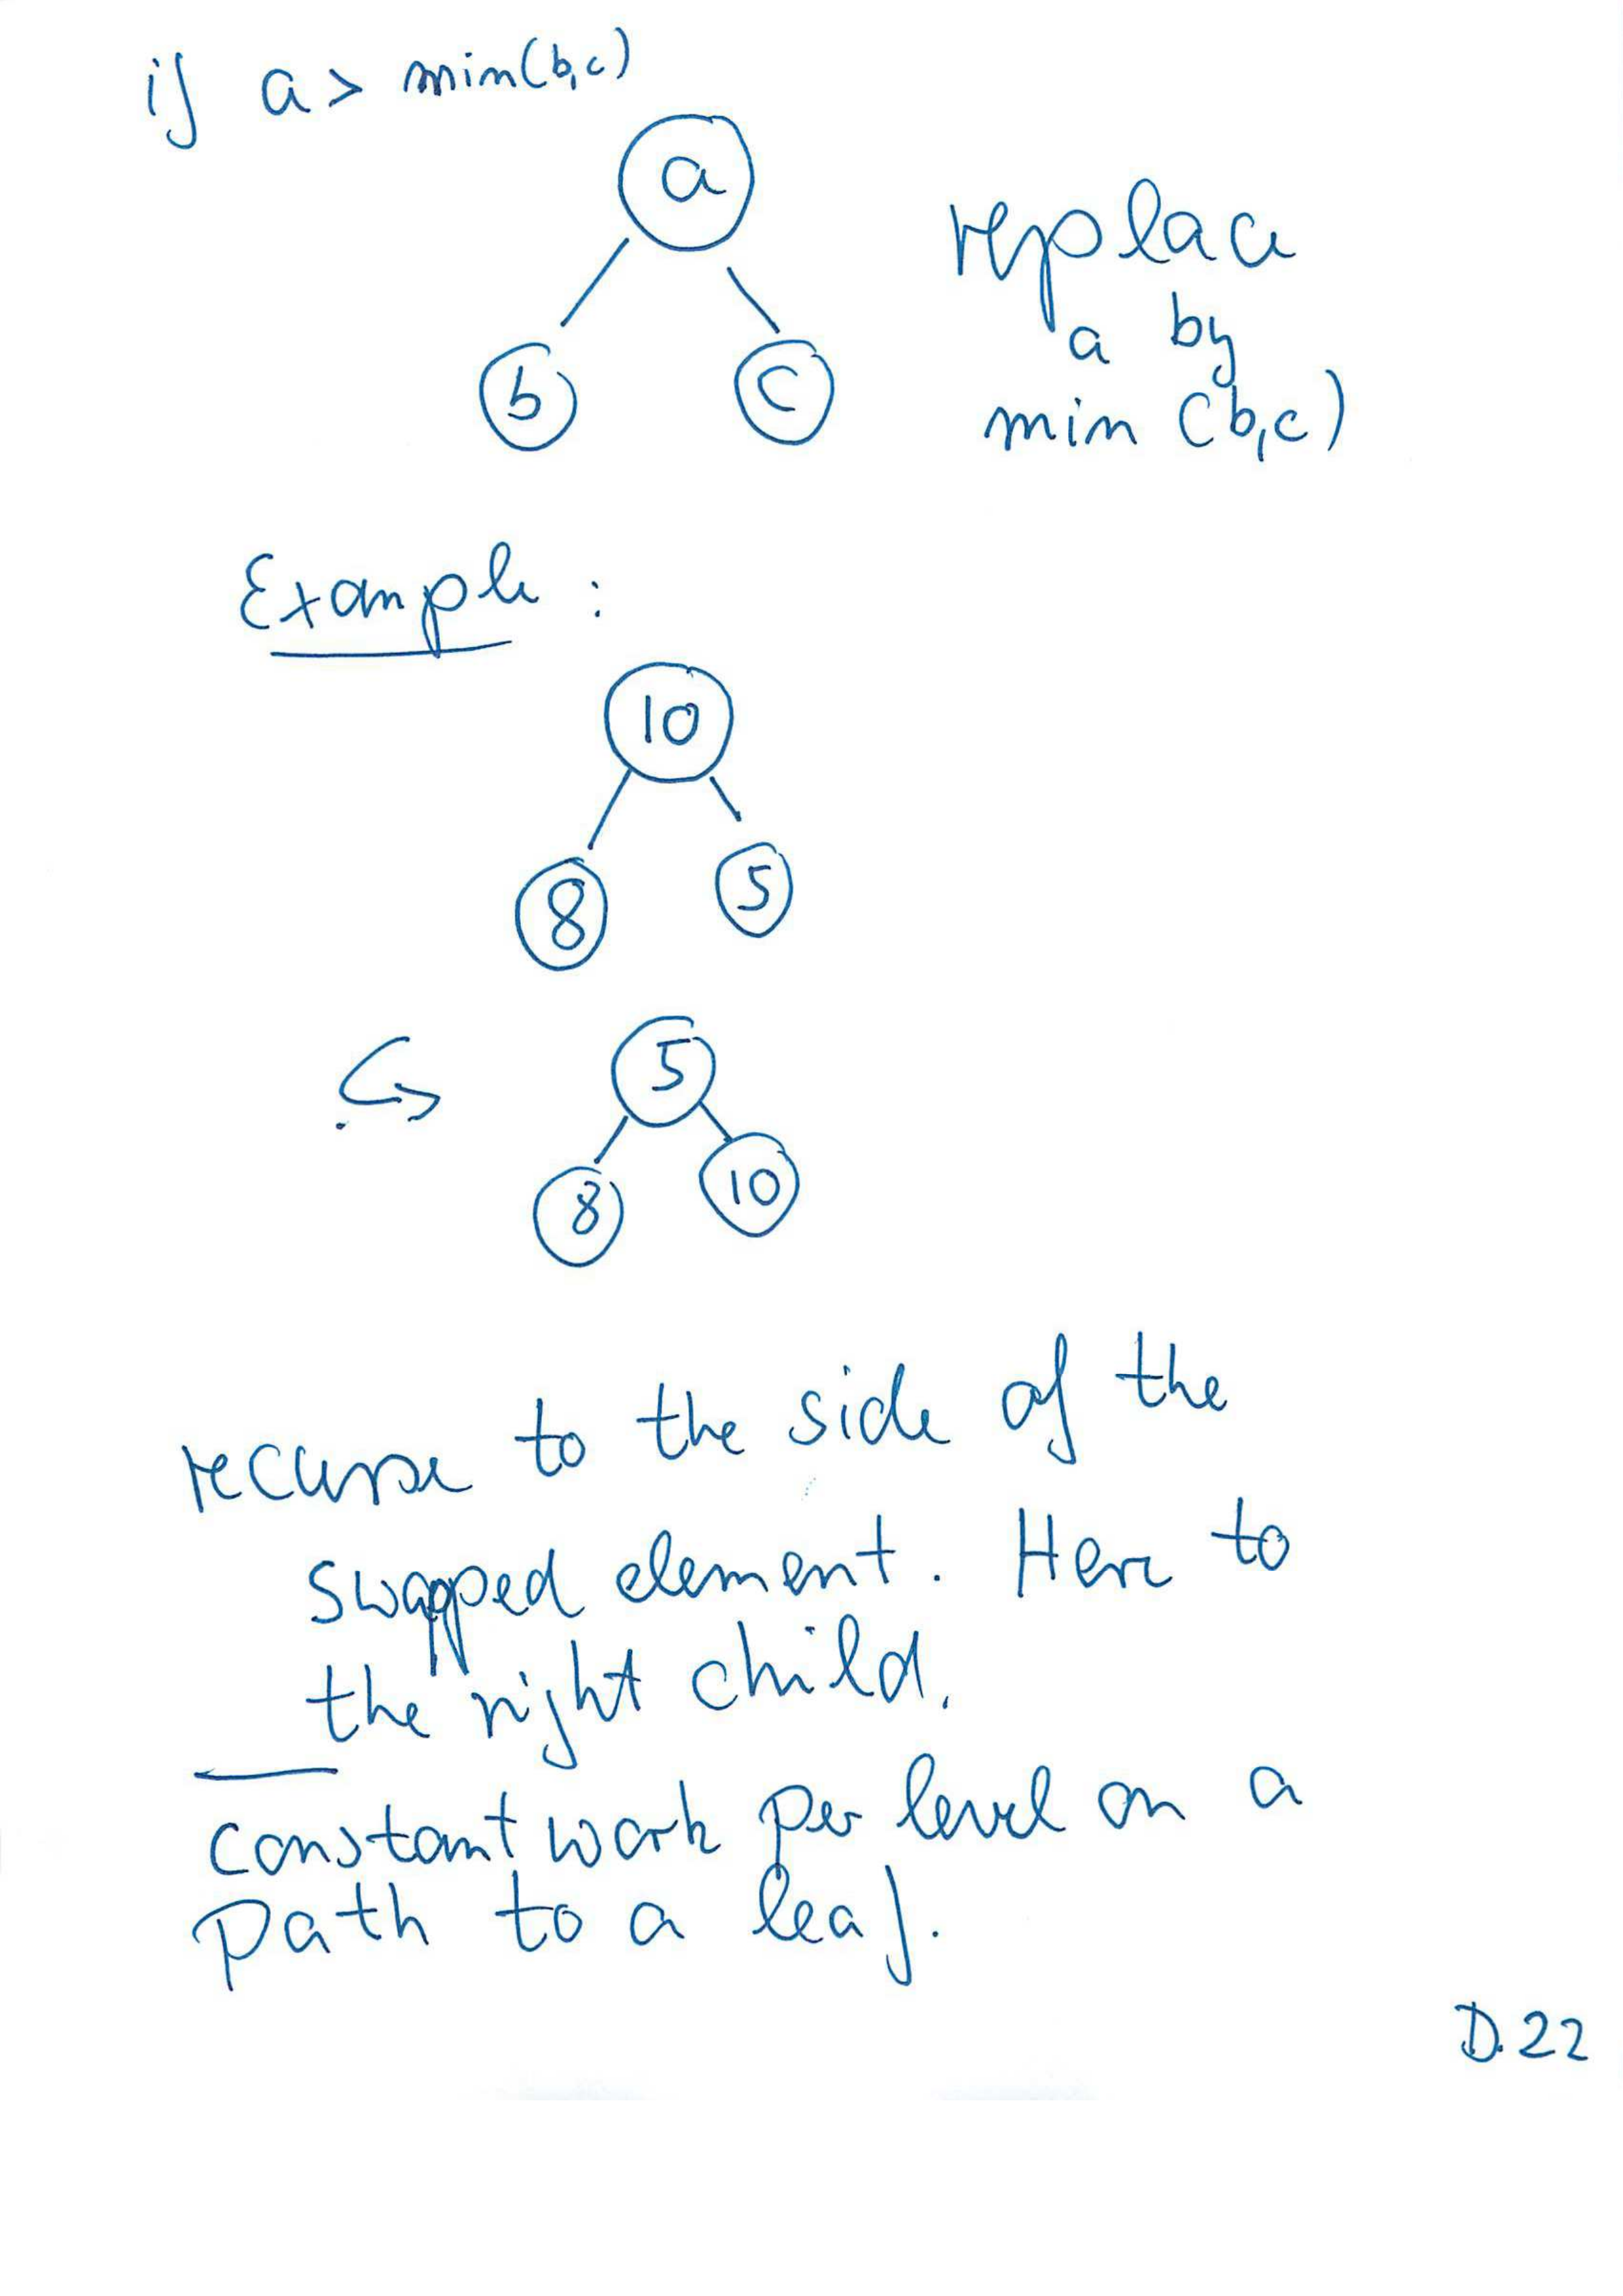 if a > min(b,c)
a
replace
b
c
a by
min (b,c)
Example :
10
8
5
5
8
10
recurse to the side of the
swapped element. Here to
the right child.
constant work per level on a
path to a leaf.
D.22